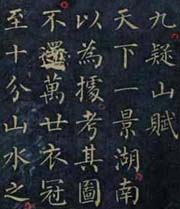 九疑山賦
天下一景湖南
以為據考其圖
不還萬世衣冠
至十分山水之